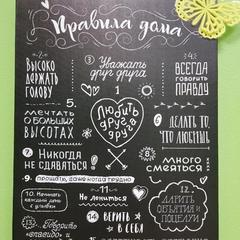 Правила дома
2.
ВЫСОКО
ДЕРЖАТЬ
ГОЛОВУ
Уважать
друг
друга
3.
ВСЕГДА
ГОВОРИТЬ
ПРАВДУ
Любить
друг
друга
5.
МЕЧТАТЬ
О БОЛЬШИХ
ВЫСОТАХ
ДЕЛАТЬ ТО,
ЧТО ЛЮБИШЬ
7. Никогда
НЕ СДАВАТЬСЯ!
8.
МНОГО
СМЕЯТЬСЯ
9. ПРОЩАТЬ, ДАЖЕ КОГДА ТРУДНО
10. Начинать
каждый день
с улыбки
11
Не лениться
12.
ДАРИТЬ
ОБЪЯТИЯ И
ПОЦЕЛУИ
13. Говорить
"спасибо" и
14 ВЕРИТЬ
В СЕБЯ